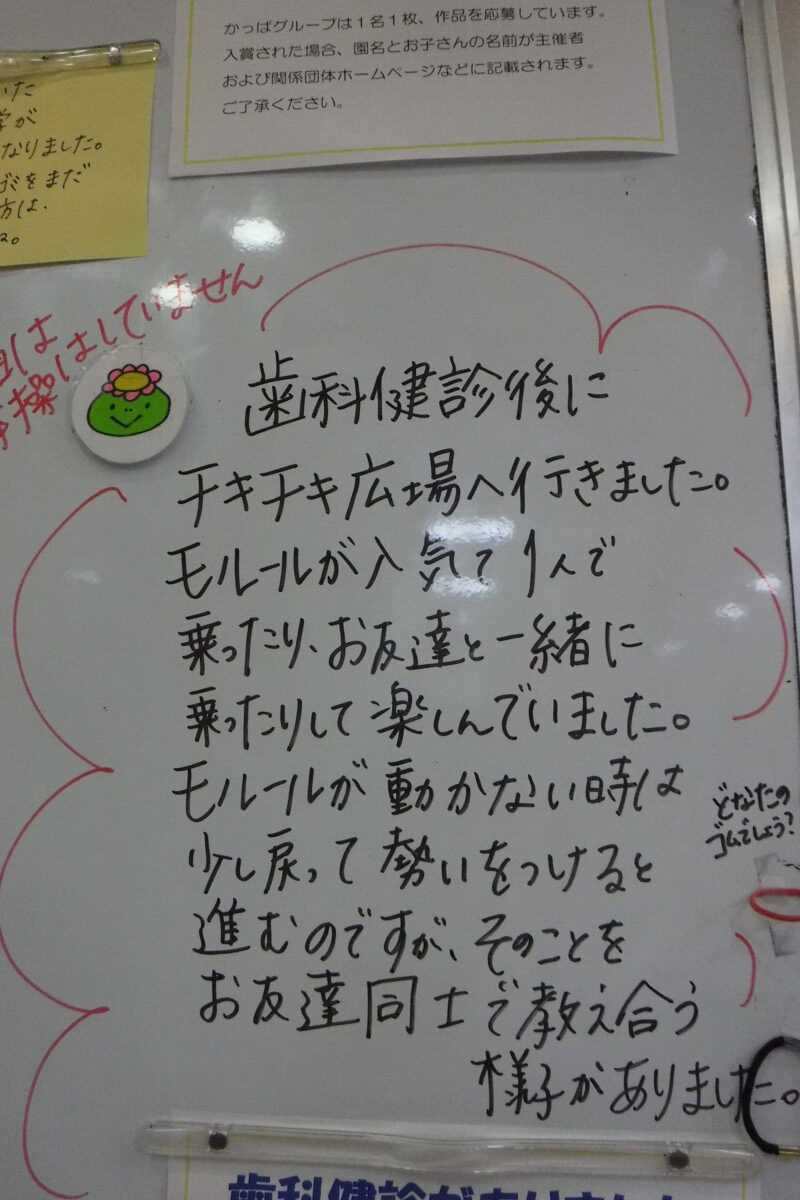 かっぱグループは1名1枚、作品を応募しています。
入賞された場合、園名とお子さんの名前が主催者
および関係団体ホームページなどに記載されます。
ご了承ください。
いた
学が
なりました。
ゴミをまだ
方は、
組は
体操はしていません
歯科健診後に
チキチキ広場へ行きました。
モルールが人気で1人で
乗ったり、お友達と一緒に
乗ったりして楽しんでいました。
モルールが動かない時は
少し戻って勢いをつけると
進むのですが、そのことを
お友達同士で教え合う
様子がありました。
どなたの
ゴムでしょう?
歯科健診がありました